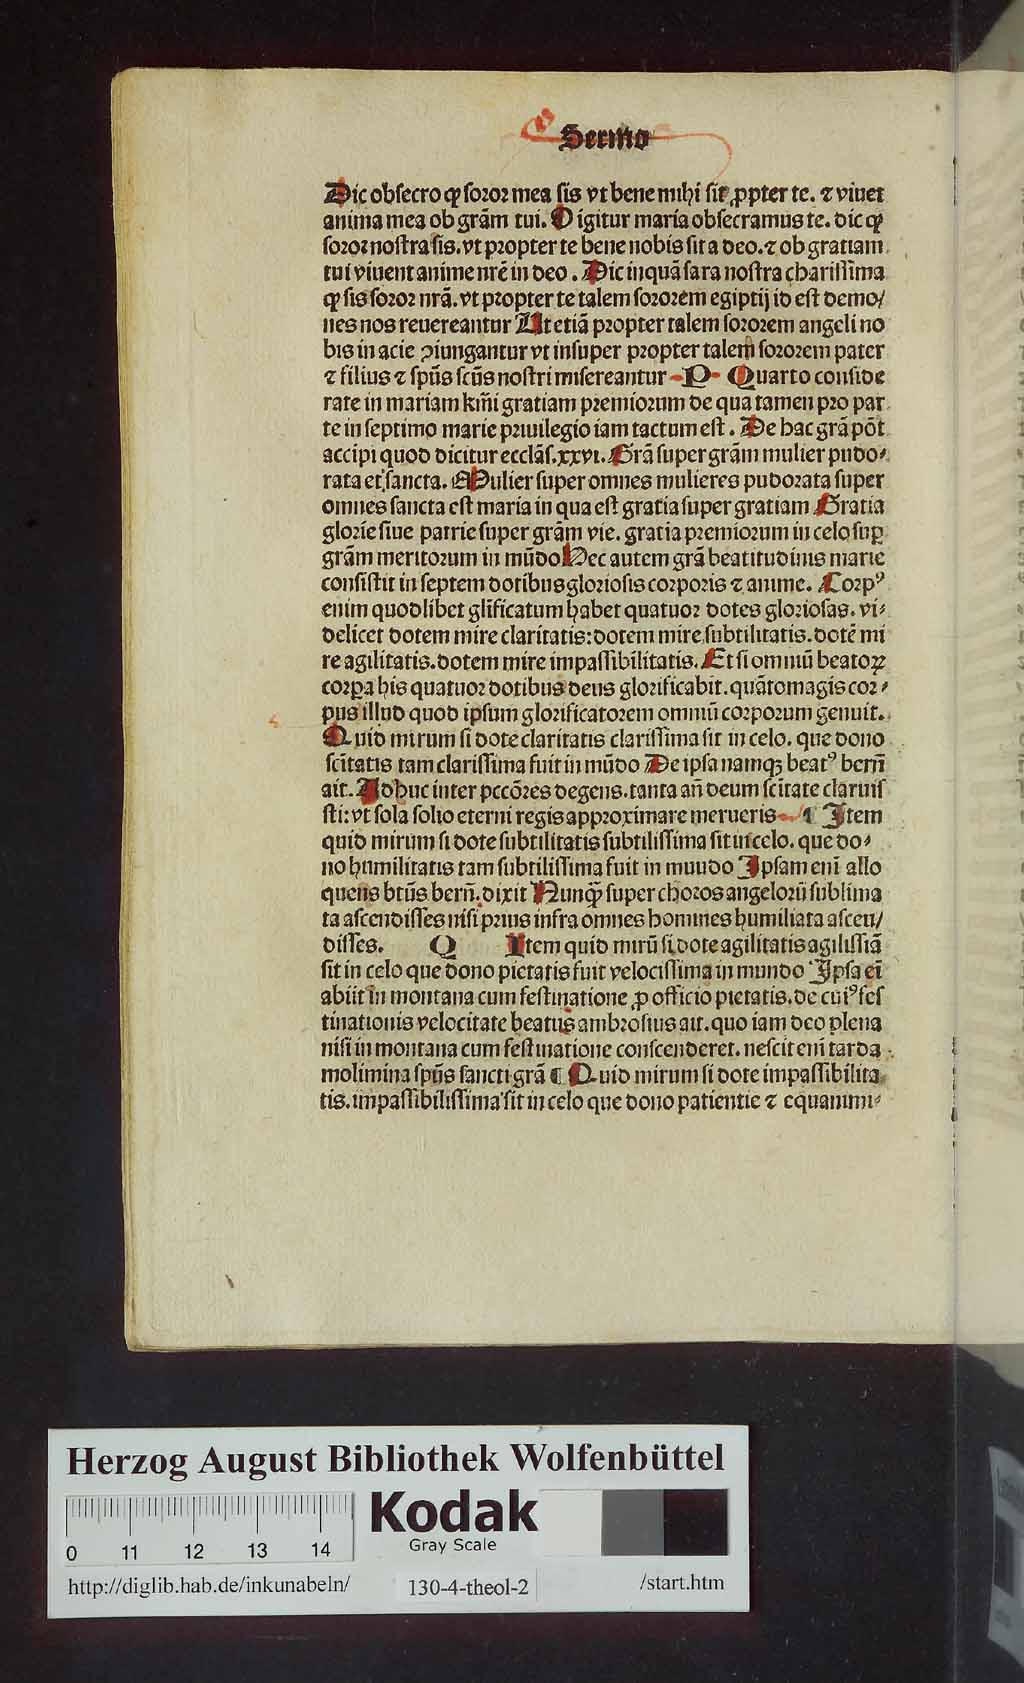 Sermo
Dic obsecro qꝫ soror mea sis vt bene mihi sit ꝓpter te. ⁊ viuet
anima mea ob grãm tui. O igitur maria obsecramus te. dic qꝫ
soror nostra sis. vt propter te bene nobis sit a deo. ⁊ ob gratiam
tui viuent anime nrẽ in deo. Dic inquã sara nostra charissima
qꝫ sis soror nrã. vt propter te talem sororem egiptij id est demo/
nes nos reuereantur Ut etiã propter talem sororem angeli no
bis in acie ꝯiungantur vt insuper propter talem sororem pater
⁊ filius ⁊ spũs scũs nostri misereantur P Quarto conside
rate in mariam km̃i gratiam premiorum de qua tamen pro par
te in septimo marie priuilegio iam tactum est. De hac grã põt
accipi quod dicitur ecclãs. xxvi. Grã super grãm mulier pudo⸗
rata et sancta. Mulier super omnes mulieres pudorata super
omnes sancta est maria in qua est gratia super gratiam Gratia
glorie siue patrie super grãm vie. gratia premiorum in celo suꝑ
grãm meritorum in mũdo Hec autem grã beatitudinis marie
consistit in septem dotibus gloriosis corporis ⁊ anime. Corpꝰ
enim quodlibet glĩficatum habet quatuor dotes gloriosas. vi⸗
delicet dotem mire claritatis: dotem mire subtilitatis. dotẽ mi
re agilitatis. dotem mire impassibilitatis. Et si omniũ beatoꝝ
corꝑa his quatuor dotibus deus glorificabit. quãtomagis cor⸗
pus illud quod ipsum glorificatorem omniũ corporum genuit.
Quid mirum si dote claritatis clarissima sit in celo. que dono
scĩtatis tam clarissima fuit in mũdo De ipsa namqꝫ beatꝰ berñ
ait. Adhuc inter pccõres degens. tanta añ deum scĩtate claruis
sti: vt sola solio eterni regis approximare merueris ¶ Item
quid mirum si dote subtilitatis subtilissima sit in celo. que do⸗
no humilitatis tam subtilissima fuit in mundo Ipsam enĩ allo
quens btũs berñ. dixit Nunqꝫ super choros angelorũ sublima
ta ascendisses nisi prius infra omnes homines humiliata ascen/
disses. Q Item quid mirũ si dote agilitatis agilissiã
sit in celo que dono pietatis fuit velocissima in mundo Ipsa eĩ
abiit in montana cum festinatione ꝓ officio pietatis. de cuiꝰ fes
tinationis velocitate beatus ambrosius ait. quo iam deo plena
nisi in montana cum festinatione conscenderet. nescit enĩ tarda
molimina spũs sancti grã ¶ Quid mirum si dote impassibilita
tis. impassibilissima sit in celo que dono patientie ⁊ equanimi⸗
Herzog August Bibliothek Wolfenbüttel
Kodak
Gray Scale
0 11 12 13 14
http://diglib.hab.de/inkunabeln/ 130-4-theol-2 /start.htm